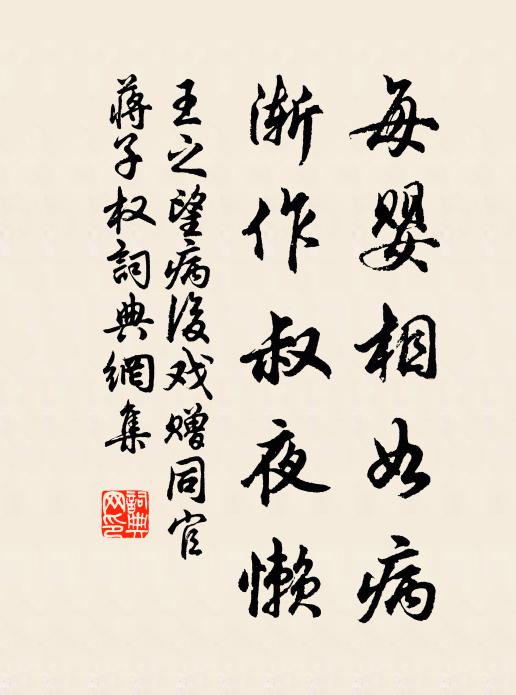 每婴相如病
渐作叔夜懒
王之望病后戏赠同官
蒋子权詞典網集
詞典网印